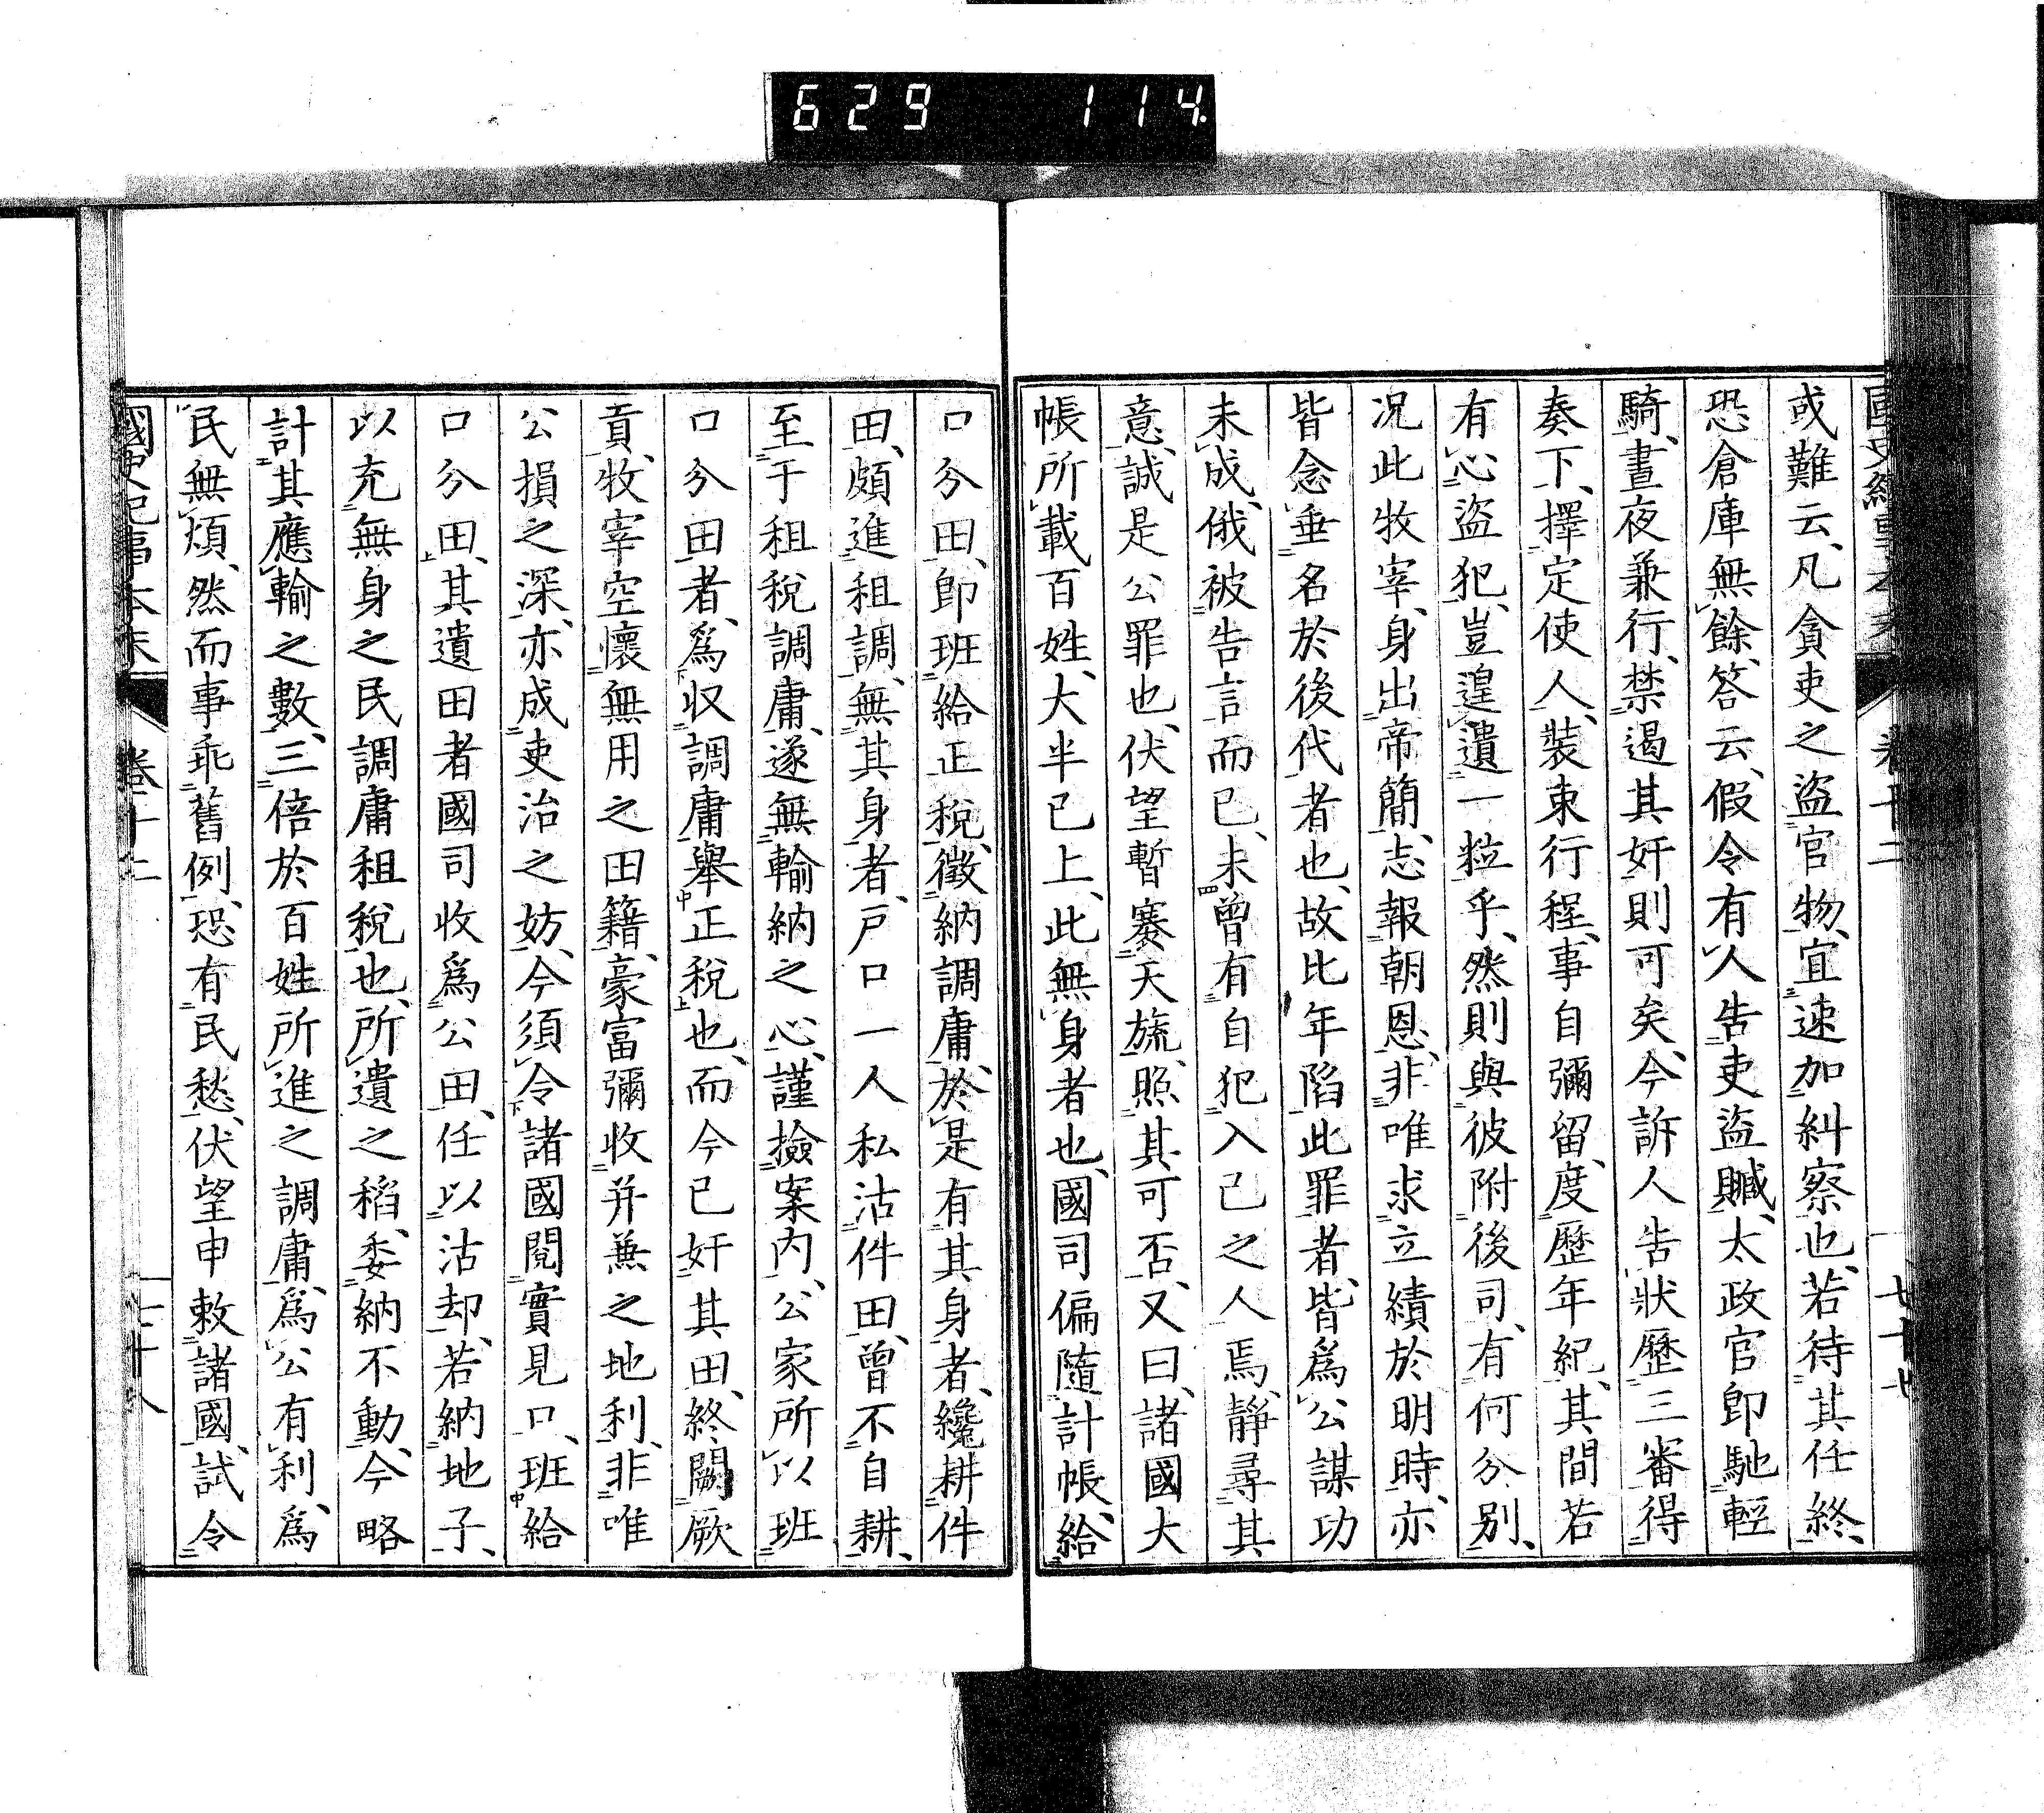 629 114
國史紀事本末 卷十二
或難云、凡貪吏之盜官物、宜速加糾察也、若待其任終、
恐倉庫無餘、答云、假令有人告吏盜贓、太政官即馳輕
騎、晝夜兼行、禁遏其奸則可矣、今訴人告狀歷三審得
奏下、擇定使人、裝束行程、事自彌留、度歷年紀、其間若
有心盜犯、豈遑遺一粒乎、然則與彼附後司、有何分别、
况此牧宰、身出帝簡、志報朝恩、非唯求立績於明時、亦
皆念垂名於後代者也、故比年陷此罪者、皆爲公謀功
未成、俄被告言而已、未曾有自犯入己之人焉、靜尋其
意、誠是公罪也、伏望暫褰天旒、照其可否、又曰、諸國大
帳所載百姓、大半已上、此無身者也、國司偏隨計帳、給
口分田、即班給正稅、徵納調庸、於是有其身者、纔耕件
田、頗進租調、無其身者、戸口一人私沽件田、曾不自耕、
至于租稅調庸、遂無輸納之心、謹撿案內、公家所以班
口分田者、爲収調庸舉正稅也、而今已奸其田、終闕厥
貢、牧宰空懷無用之田籍、豪富彌收并兼之地利、非唯
公損之深、亦成吏治之妨、今須令諸國閱實見口、班給
口分田、其遺田者國司收爲公田、任以沽却、若納地子、
以充無身之民調庸租稅也、所遺之稻、委納不動、今略
計其應輸之數、三倍於百姓所進之調庸、爲公有利、爲
民無煩、然而事乖舊例、恐有民愁、伏望申敕諸國、試令
國史紀事本末 卷十二 七十八